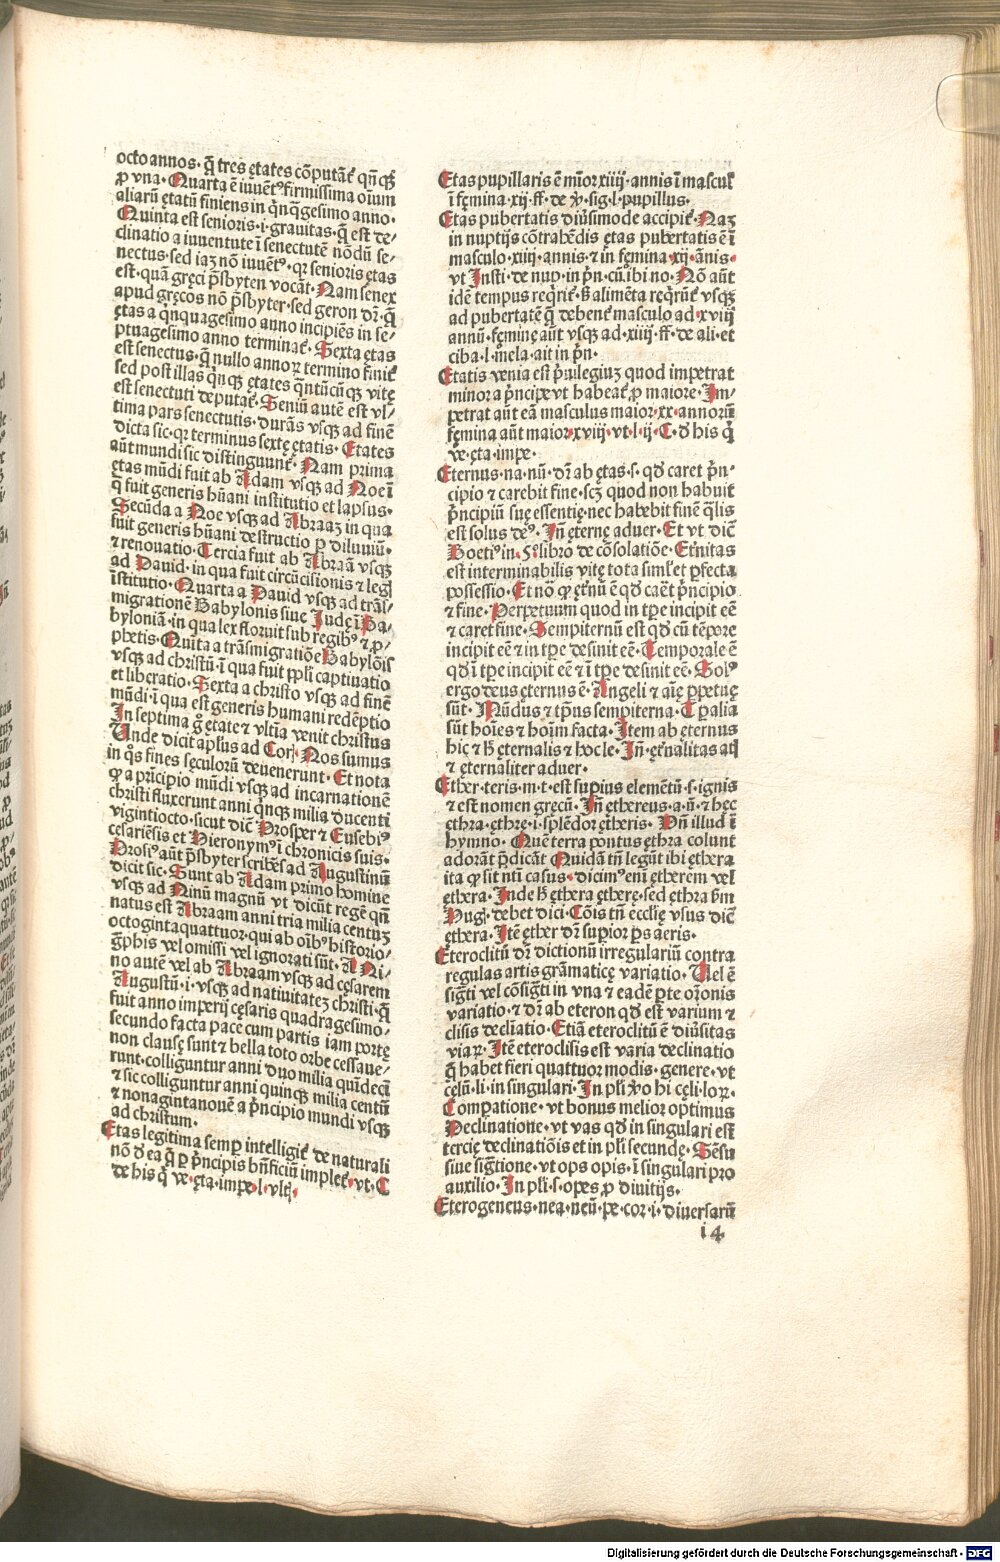 octo annos· q̄ tres ętates cōputāt᷑ qn̄ qꝫ
ꝓ vna· Quarta ē iuuētꝰ firmissima oīum
aliarū ętatū finiens in qͥnqͣgesimo anno·
Quinta est senioris·i·grauitas·q̄ est de/
clinatio a iuuentute ī senectutē nōdū se/
nectus·sed iaꝫ nō iuuētꝰ·qꝛ senioris ętas
est·quā gręci p̄sbyten vocāt· Nam senex
apud gręcos nō p̄sbyter·sed geron dr̄·q̄
ętas a qͥnquagesimo anno incipiēs in se/
ptuagesimo anno terminat᷑· Sexta ętas
est senectus·q̄ nullo annoꝝ termino finit᷑
sed post illas qͥnqꝫ ętates qͣntūcūqꝫ vitę
est senectuti deputat᷑· Seniū autē est vl/
tima pars senectutis·durās vsqꝫ ad finē
dicta sic·qꝛ terminus sextę ętatis· Etates
aūt mundi sic distinguunt᷑· Nam prima
ętas mūdi fuit ab Adam vsqꝫ ad Noe ī
q̄ fuit generis hūani institutio et lapsus·
Secūda a Noe vsqꝫ ad Abraaꝫ in qua
fuit generis hūani destructio ꝑ diluuiū·
⁊ renouatio· Tercia fuit ab Abraā vsqꝫ
ad Dauid·in qua fuit circūcisionis ⁊ legꝭ
īstitutio· Quarta a Dauid vsqꝫ ad trās/
migrationē Babylonis siue Iudę ī Ba/
byloniā·in qua lex floruit sub regibꝰ ⁊ ꝓ/
phetis· Quīta a trāsmigratiōe Babylōis
vsqꝫ ad christū·ī qua fuit ppl̄i captiuatio
et liberatio· Sexta a christo vsqꝫ ad finē
mūdi·ī qua est generis humani redēptio
In septima g̊ ętate ⁊ vltīa venit christus
Vnde dicit apl̄us ad Corꝭ· Nos sumus
in qͦs fines sęculorū deuenerunt· Et nota
ꝙ a prīcipio mūdi vsqꝫ ad incarnationē
christi fluxerunt anni qͥnqꝫ milia ducenti
vigintiocto·sicut diēt Prosper ⁊ Eusebiꝰ
cęsariēsis et Hieronymꝰ ī chronicis suis·
Prosiꝰ aūt p̄sbyter scribēs ad Augustinū
dicit sic· Sunt ab Adam primo homine
vsqꝫ ad Ninū magnū vt dicūt regē qn̄
natus est Abraam anni tria milia centuꝫ
octogintaquattuor·qui ab oīb⁹ historio/
gͣphis vel omissi vel ignorati sūt· A Ni/
no autē vel ab Abraam vsqꝫ ad cęsarem
Augustū·i·vsqꝫ ad natiuitateꝫ christi·q̄
fuit anno imperij cęsaris quadragesimo/
secundo facta pace cum partis iam portę
non clausę sunt ⁊ bella toto orbe cessaue/
runt·colliguntur anni duo milia quīdecī
⁊ sic colliguntur anni quinqꝫ milia centū
⁊ nonagintanouē a p̄ncipio mundi vsqꝫ
ad christum·
Etas legitima semꝑ intelligit᷑ de naturali
nō ꝺ ea q̄ ꝑ p̄ncipis bn̄ficiū implet᷑·vt·C
de his q̄ ve·ęta·impe·l·vltꝭ·
Etas pupillaris ē mīor xiiij·annis ī mascul̄
ī fęmina·xij·ff·de v̄·sig·l·pupillus·
Etas pubertatis diūsimode accipit᷑· Naꝫ
in nuptijs cōtrahēdis ętas pubertatis ē ī
masculo·xiiij·annis·⁊ in fęmina·xij·ānis·
vt Insti·de nup·in pn̄·cū ibi no· Nō aūt
idē tempus reqͥrit᷑·s̄ alimēta reqͥrūt᷑ vsqꝫ
ad pubertatē q̄ debent᷑ masculo ad·xviij
annū·fęminę aūt vsqꝫ ad·xiiij·ff·de ali·et
ciba·l·mela·ait in pn̄·
Etatis venia est p̄uilegiuꝫ quod impetrat
minor a p̄ncipe vt habeat᷑ ꝓ maiore· Im/
petrat aūt eā masculus maior·xx·annorū
fęmina aūt maior·xviij·vt·l·ij·C·ꝺ his q̄
ve·ęta·impe·
Eternus·na·nū·dr̄ ab ętas·s·qꝺ caret p̄n/
cipio ⁊ carebit fine·scꝫ quod non habuit
p̄ncipiū suę essentię·nec habebit finē qͣlis
est solus deꝰ· Jn̄ ęterne aduer· Et vt dicit
Boetiꝰ in·5·libro de cōsolatiōe· Et̄nitas
est interminabilis vitę tota siml̄ et ꝑfecta
possessio· Et nō ꝙ ęt̄nū ē qꝺ caēt p̄ncipio
⁊ fine· Perpetuum quod in tꝑe incipit eē
⁊ caret fine· Sempiternū est qꝺ cū tēpore
incipit eē ⁊ in tꝑe desinit eē· Temporale ē
qꝺ ī tꝑe incipit eē ⁊ ī tꝑe desinit eē· Solꝰ
ergo deus ęternus ē· Angeli ⁊ aīę ꝑpetuę
sūt· Mūdus ⁊ tp̄us sempiterna· Cꝑalia
sūt hoīes ⁊ hoīm facta· Item ab ęternus
hic ⁊ h̄ ęternalis ⁊ hoc le· Jn̄·ęt̄nalitas atis
⁊ ęternaliter aduer·
Ether·teris·m·t·est supius elemētū·s·ignis
⁊ est nomen gręcū· Jn̄ ęthereus·a·ū·⁊ hęc
ęthra·ęthrę·i·splēdor ętheris· Vn̄ illud ī
hymno· Quē terra pontus ęthra colunt
adorāt p̄dicāt· Quidā tn̄ legūt ibi ęthera
ita ꝙ sit nt̄i casus· dicimꝰ eni ętherem vel
ęthera· Inde h̄ ęthera ętherę·sed ęthra s̄m
Hugꝭ·debet dici· Cōis tn̄ eccl̄ię vsus dicit
ęthera· Itē ęther dr̄ supior ps aeris·
Eteroclitū dr̄ dictionū irregulariū contra
regulas artis grāmaticę variatio· Vel ē
sigt̄i vel cōsigt̄i in vna ⁊ eadē ꝑte or̄onis
variatio·⁊ dr̄ ab eteron qꝺ est varium ⁊
clisis declīatio· Etiā eteroclitū ē diūsitas
viaꝝ· Itē eteroclisis est varia declinatio
q̄ habet fieri quattuor modis·genere·vt
cęlū·li·in singulari· In pl̄i v̊o hi cęli·loꝝ·
Compatione·vt bonus melior optimus
Declinatione·vt vas qꝺ in singulari est
tercię declinatiōis et in pl̄i secundę· Sēsu
siue sig̅tione·vt ops opis·ī singulari pro
auxilio· In pl̄i·s·opes ꝓ diuitijs·
Eterogeneus·nea·neū·pe·cor·i·diuersarū
i 4
Digitalisierung gefördert durch die Deutsche Forschungsgemeinschaft - DFG